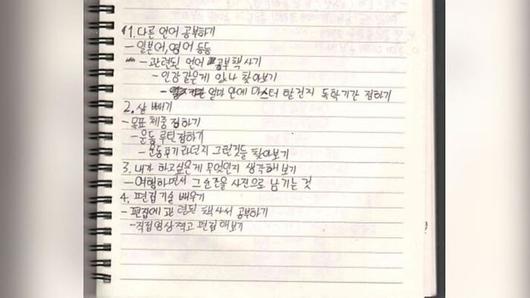 1. 다른 언어 공부하기
- 일본어, 영어 등등
- 관련된 언어 공부책 사기
- 인강같은게 있나 찾아보기
- 얼마 안에 마스터 할건지 독학기간 정하기
2. 살 빼기
- 목표 체중 정하기
- 운동 루틴 정하기
- 운동후기라던지 그런것들 찾아보기
3. 내가 하고싶은게 무엇인지 생각해보기
- 여행하면서 그 순간을 사진으로 남기는 것
4. 편집기술 배우기
- 편집에 관련된 책사서 공부하기
- 직접 영상찍고 편집해보기